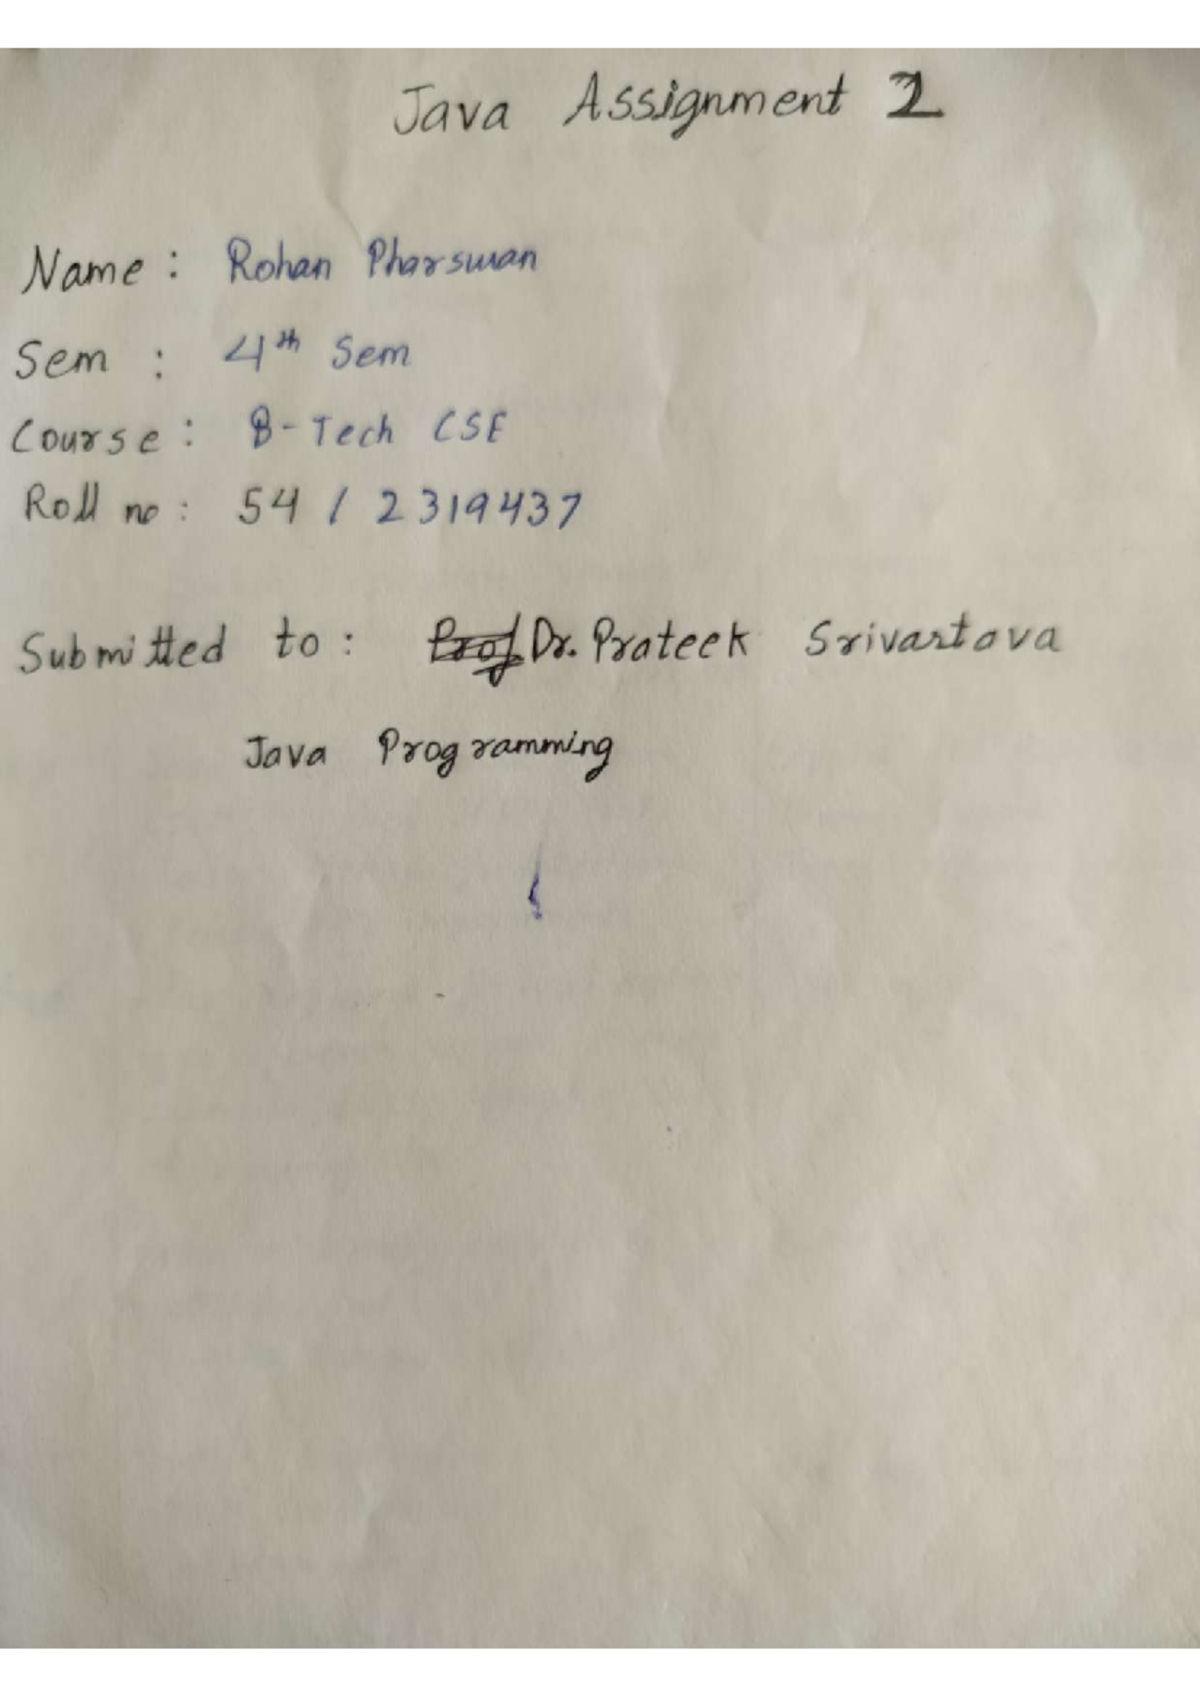 Java Assignment 2
Name : Rohan Pharswan
Sem : 4th Sem
Course : B-Tech CSE
Roll no : 54 / 2319437
Submitted to : Prof. Dr. Prateek Srivastava
Java Programming